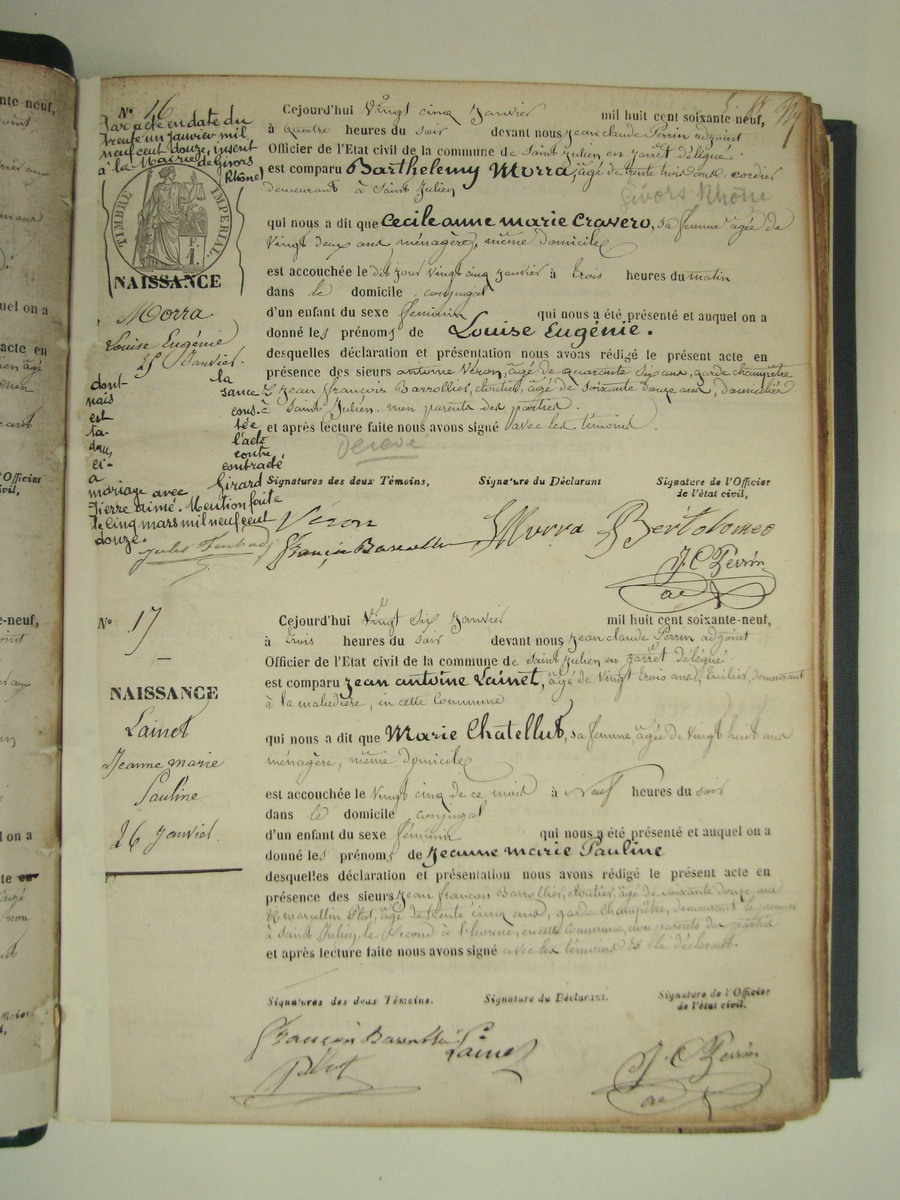 N° 16
Par acte en date du
trente un Janvier mil
neuf cent douze, inscrit
à la Mairie de Givors
(Rhône)
TIMBRE IMPÉRIAL
F.
1.
NAISSANCE
Morra
Louise Eugénie
25 Janvier.
dont la
nais sance
est cons-
ta- tée
l'acte
ci- contre
a contracté
mariage avec Girard
Pierre aimé. Mention faite
le cinq mars mil neuf cent
douze.
Cejourd'hui Vingt cinq Janvier mil huit cent soixante-neuf,
à quatre heures du soir devant nous Jean claude Perrin adjoint
Officier de l'Etat civil de la commune de Saint Julien en Jarret délégué
est comparu Barthelemy Morra, âgé de trente trois ans, cordier
demeurant à Saint Julien
Givors Rhône
qui nous a dit que Cecile anne marie Cravero, sa femme âgée de
Vingt deux ans, ménagère, même domicile
est accouchée le dit jour Vingt cinq Janvier à trois heures du matin
dans le domicile conjugal
d'un enfant du sexe féminin qui nous a été présenté et auquel on a
donné les prénoms de Louise Eugénie.
desquelles déclaration et présentation nous avons rédigé le présent acte en
présence des sieurs antoine Véron, âgé de quarante six ans, garde champêtre
& Jean françois Barrollier, cloutier, âgé de soixante douze ans, domiciliés
à Saint Julien, non parents des parties.
et après lecture faite nous avons signé avec les témoins.
Signatures des deux Témoins, Signature du Déclarant Signature de l'Officier
de l'état civil,
Véron Morra Bertolomeo
J. C. Perrin
N° 17
NAISSANCE
Lainet
Jeanne marie
Pauline
26 Janvier.
Cejourd'hui Vingt Six Janvier mil huit cent soixante-neuf,
à trois heures du soir devant nous Jean claude Perrin adjoint
Officier de l'Etat civil de la commune de Saint Julien en Jarret délégué
est comparu Jean antoine Lainet, âgé de Vingt trois ans, tuilier, demeurant
à la maladière, en cette Commune
qui nous a dit que Marie Chatellut, sa femme, âgée de Vingt huit ans
ménagère, même domicile
est accouchée le Vingt cinq de ce mois à Neuf heures du soir
dans le domicile conjugal
d'un enfant du sexe féminin qui nous a été présenté et auquel on a
donné les prénoms de Jeanne marie Pauline
desquelles déclaration et présentation nous avons rédigé le présent acte en
présence des sieurs Jean françois Barrollier, cloutier, âgé de soixante douze ans
& marcellin Plot, âgé de trente cinq ans, garde champêtre, demeurant le premier
à Saint Julien, le second à l'horme, en cette Commune, non parents des parties
et après lecture faite nous avons signé avec les témoins & le déclarant.
Signatures des deux Témoins. Signature du Déclarant. Signature de l'Officier
de l'état civil.
Lainet
J. C. Perrin